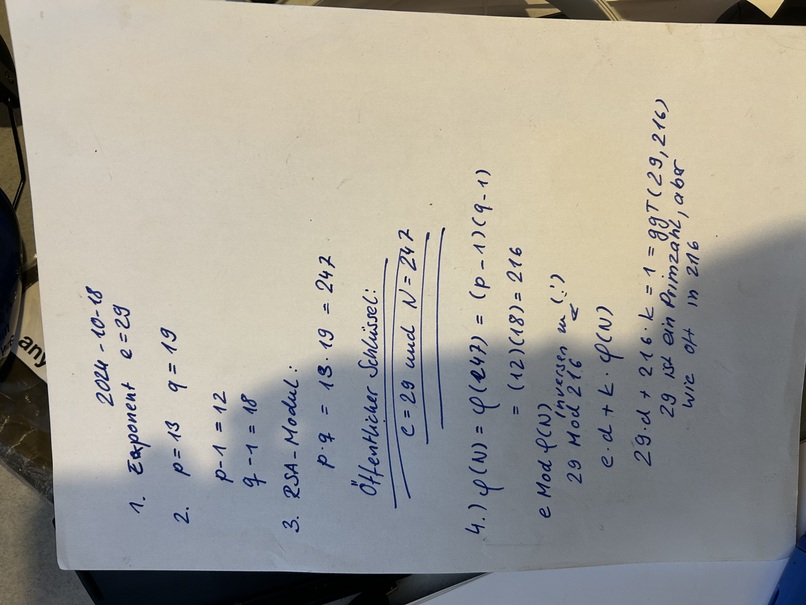 any
2024-10-18
1. Exponent e=29
2. p=13 q=19
p-1 = 12
q-1 = 18
3. RSA-Modul:
p·q = 13·19 = 247
Öffentlicher Schlüssel:
e=29 und N=247
4.) φ(N) = φ(247) = (p-1)(q-1)
= (12)(18) = 216
e Mod φ(N)
inversen (!)
29 Mod 216
e·d + k·φ(N)
29·d + 216·k = 1 = ggT(29,216)
29 ist ein Primzahl, aber
wie oft in 216